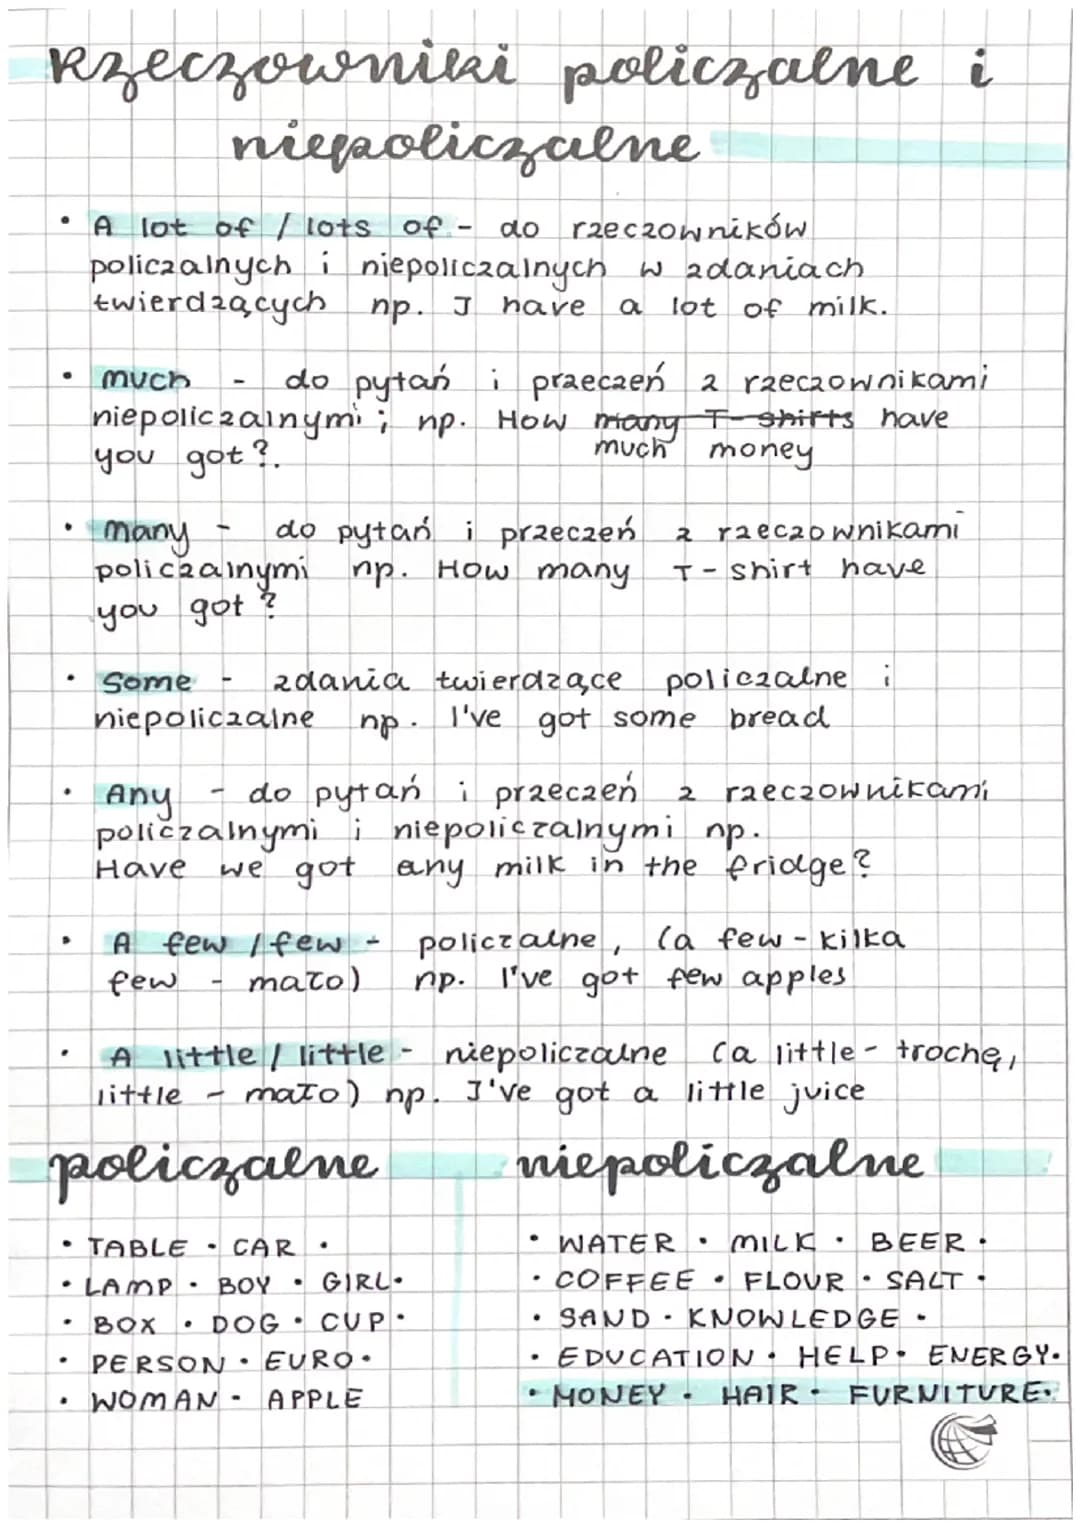 Rzeczowniki policzalne i
niepoliczalne
• A lot of / lots of - do rzeczowników
policzalnych i niepoliczalnych w zdaniach
twierdzących np. I have a lot of milk.
• much - do pytań i przeczeń z rzeczownikami
niepoliczalnymi; np. How many T-shirts have
you got?. much money
• many - do pytań i przeczeń z rzeczownikami
policzalnymi np. How many T-shirt have
you got?
• Some - zdania twierdzące policzalne i
niepoliczalne np. I've got some bread
• Any - do pytań i przeczeń z rzeczownikami
policzalnymi i niepoliczalnymi np.
Have we got any milk in the fridge?
• A few / few - policzalne, (a few - kilka
few - mało) np. I've got few apples
• A little / little - niepoliczalne (a little - trochę,
little - mało) np. I've got a little juice
policzalne
• TABLE • CAR •
• LAMP • BOY • GIRL •
• BOX • DOG • CUP •
• PERSON • EURO •
• WOMAN • APPLE
niepoliczalne
• WATER • MILK • BEER •
• COFFEE • FLOUR • SALT •
• SAND • KNOWLEDGE •
• EDUCATION • HELP • ENERGY •
• MONEY • HAIR • FURNITURE •